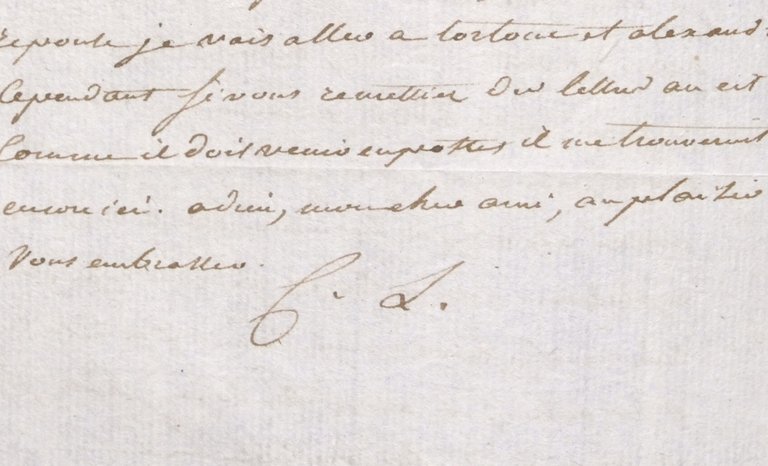 reponse je vais aller a tortone et alexand
Cependant si vous remettiez des lettres au cit
Comme il doit venir en postes il me trouveroit
encore ici. adieu, mon cher ami, au plaisir
Vous embrasser.
C. L.